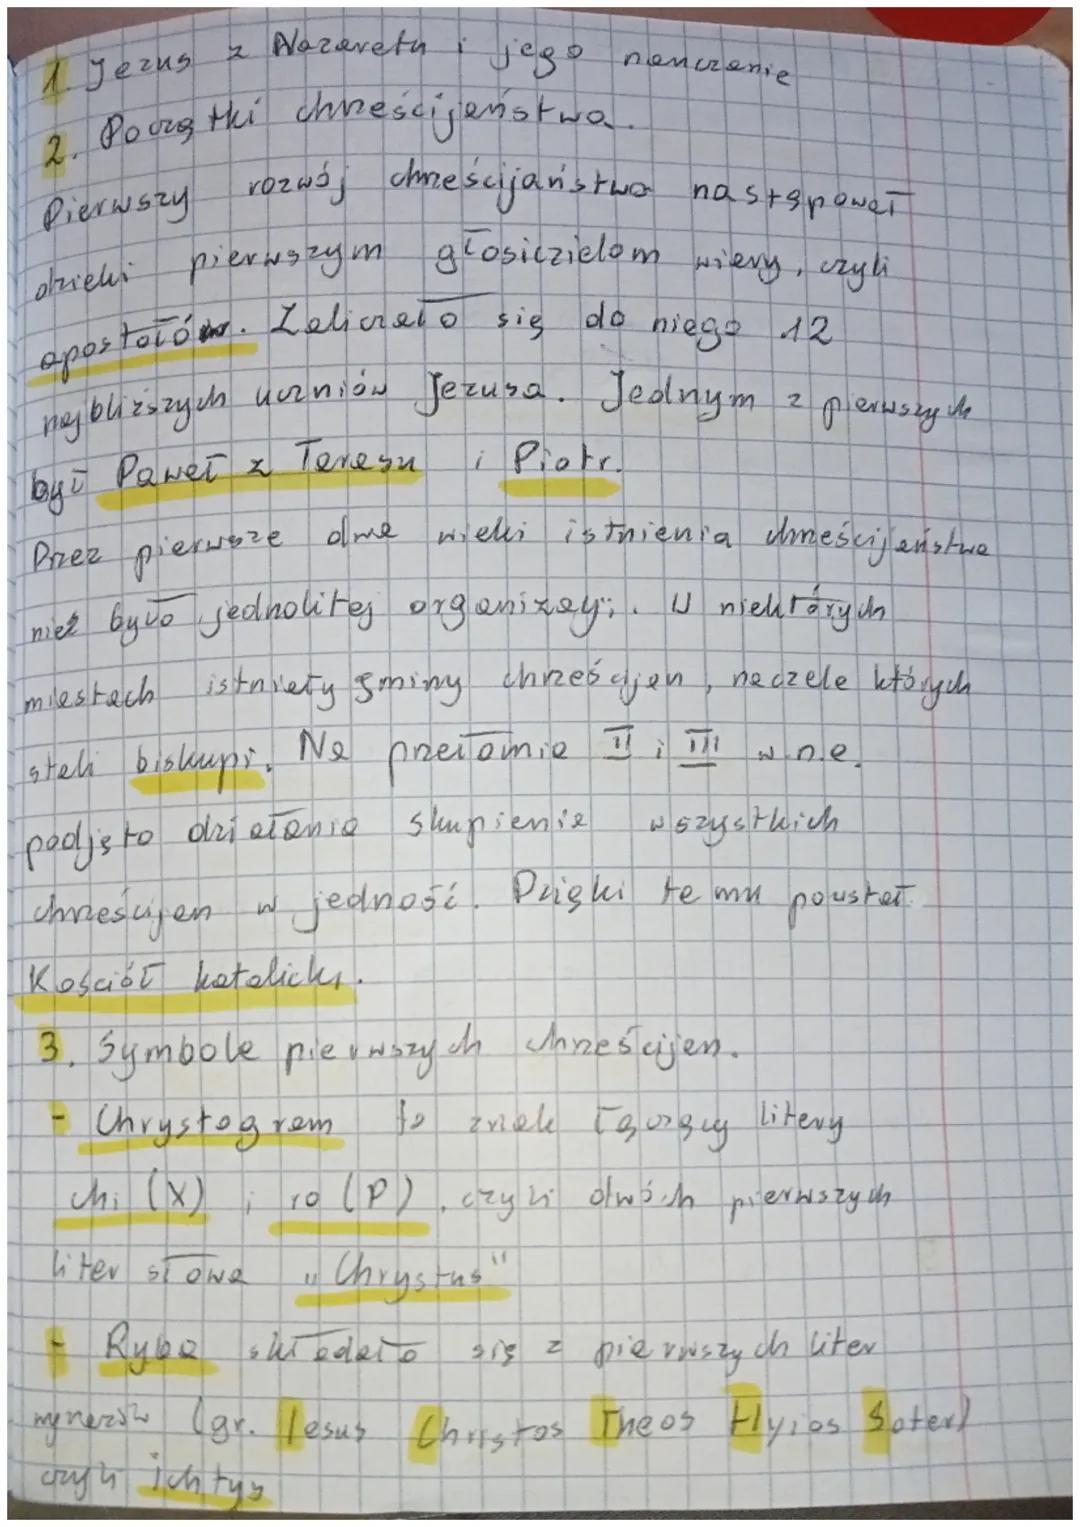 1. Jezus z Nazaretu i jego nauczanie
2. Początki chrześcijaństwa.
Pierwszy rozwój chrześcijaństwa następował
dzieki pierwszym głosiczielom wiary, czyli
apostołów. Zaliczało się do niego 12
najbliższych uczniów Jezusa. Jednym z pierwszych
był Paweł z Taresu i Piotr.
Przez pierwsze dwa wieki istnienia chrześcijaństwa
nie było jednolitej organizacji. W niektórych
miastach istniały gminy chrześcijan, na czele których
stali biskupi. Na przełomie II i III w.n.e.
podjęto działania skupienie wszystkich
chrześcijan w jedność. Dzięki temu poustał
Kościół katolicki.
3. Symbole pierwszych chrześcijan.
- Chrystogram to znak łączący litery
chi (X) i ro (P), czyli dwóch pierwszych
liter słowa „Chrystus"
- Ryba składało się z pierwszych liter
wyrazów (gr. Iesus Christos Theos Hyios Soter)
czyli ichtys